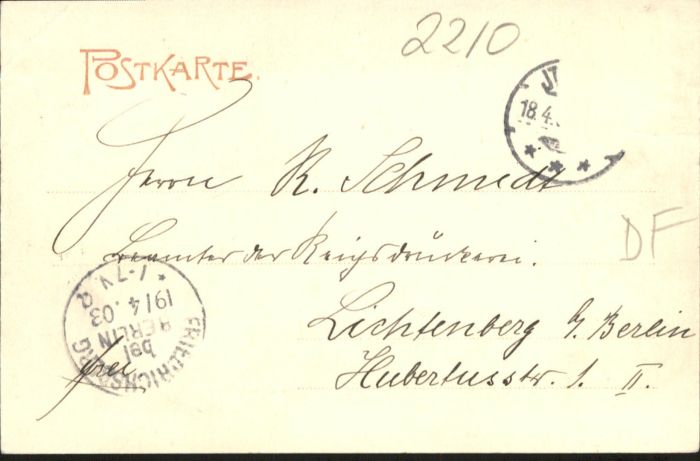 2210
POSTKARTE.
ST
18.4.
Herrn R. Schmidt
Beamter der Reichsdruckerei.
DF
Lichtenberg b/ Berlin
Hubertusstr. 1. II.
frei
FRIEDRICHSBERG
bei
BERLIN
19/4.03
*1-7V.